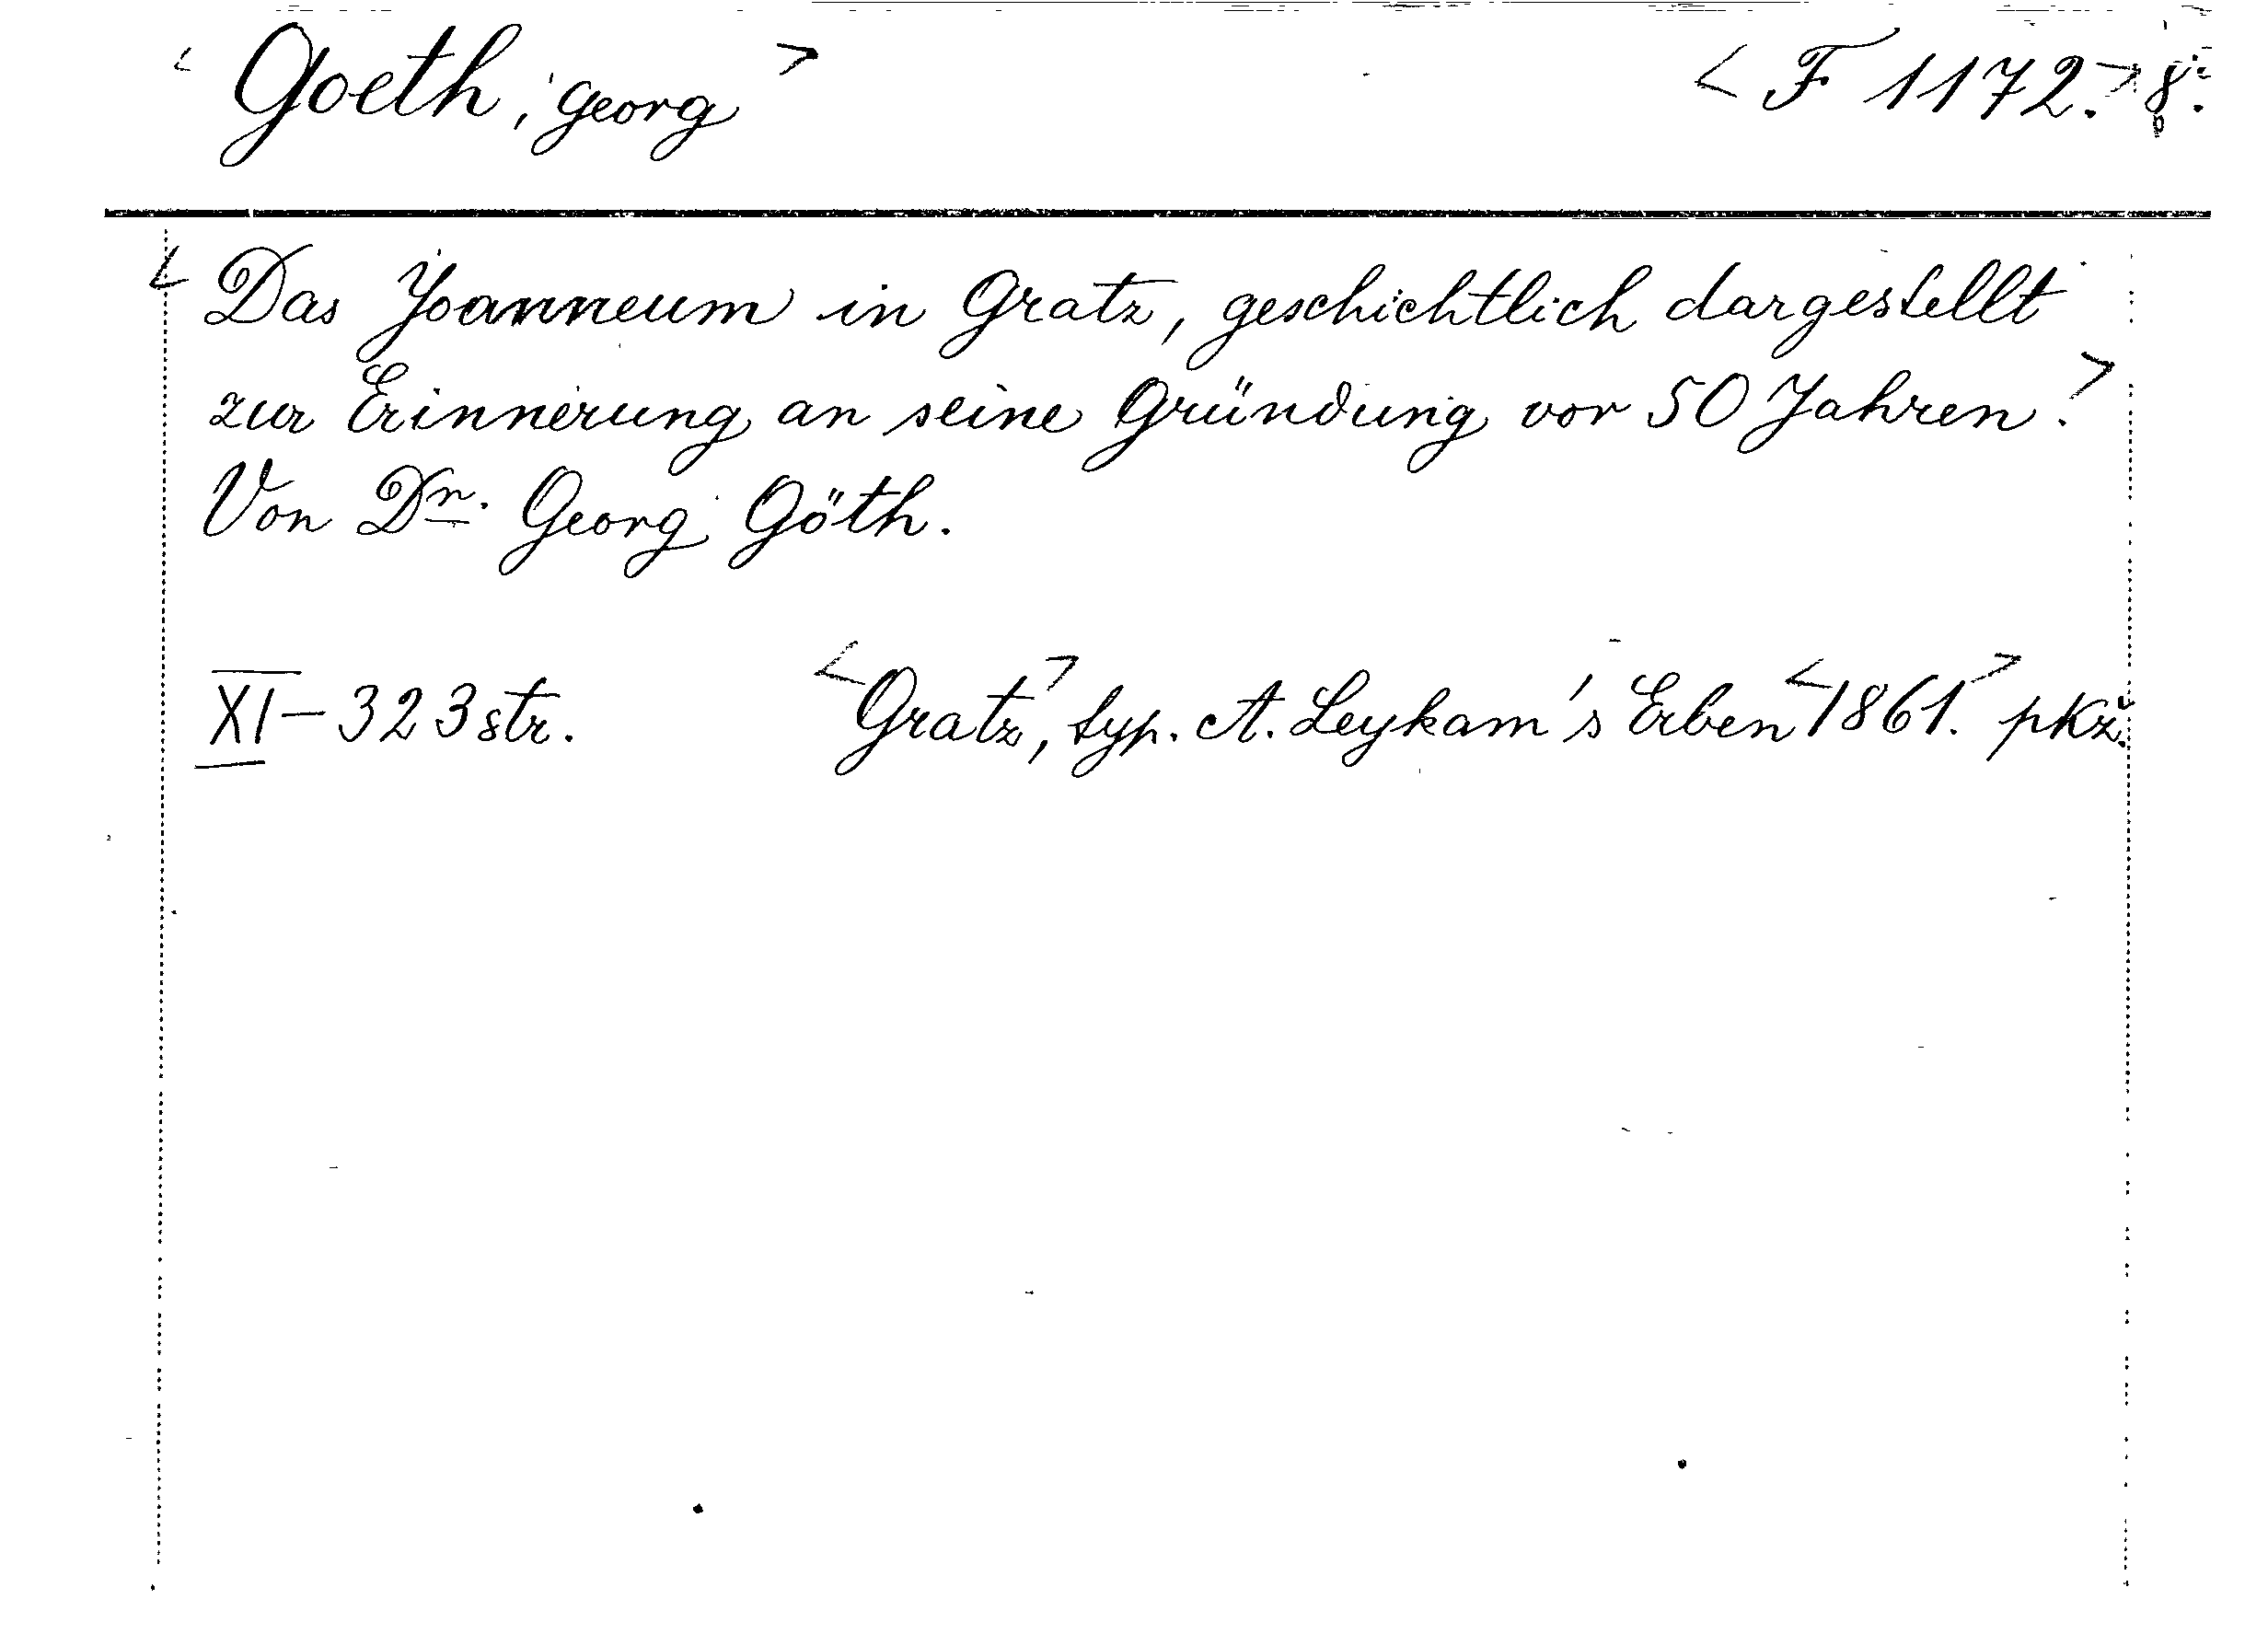 < Goeth, Georg > < F 1172. > 8º.
< Das Joanneum in Gratz, geschichtlich dargestellt
zur Erinnerung an seine Gründung vor 50 Jahren. >
Von Dr. Georg Göth.
XI – 323 str. < Gratz >, typ. A. Leykam's Erben < 1861. > pKž.